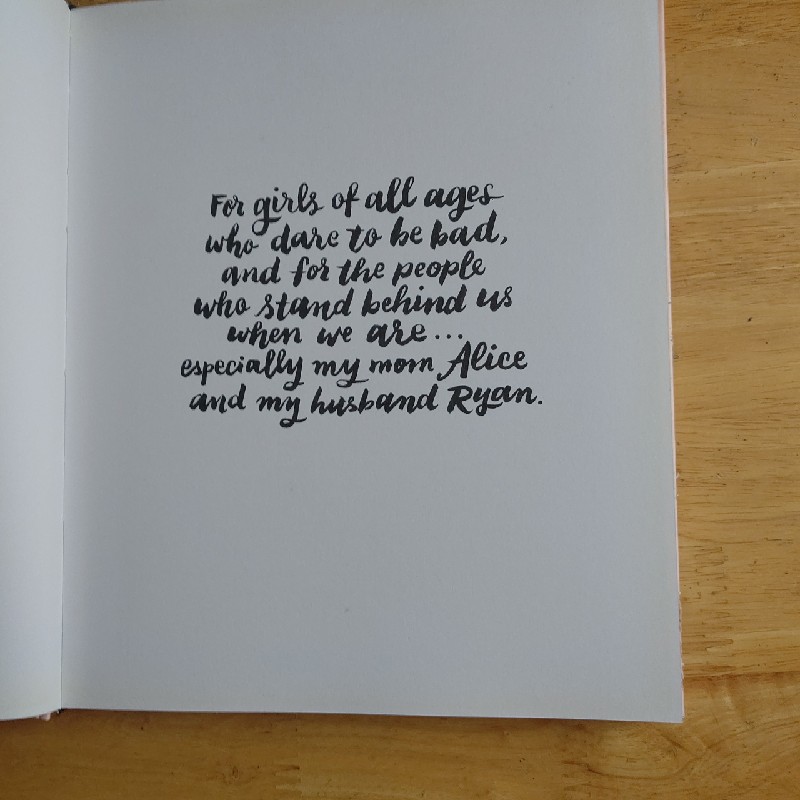 For girls of all ages
who dare to be bad,
and for the people
who stand behind us
when we are...
especially my mom Alice
and my husband Ryan.